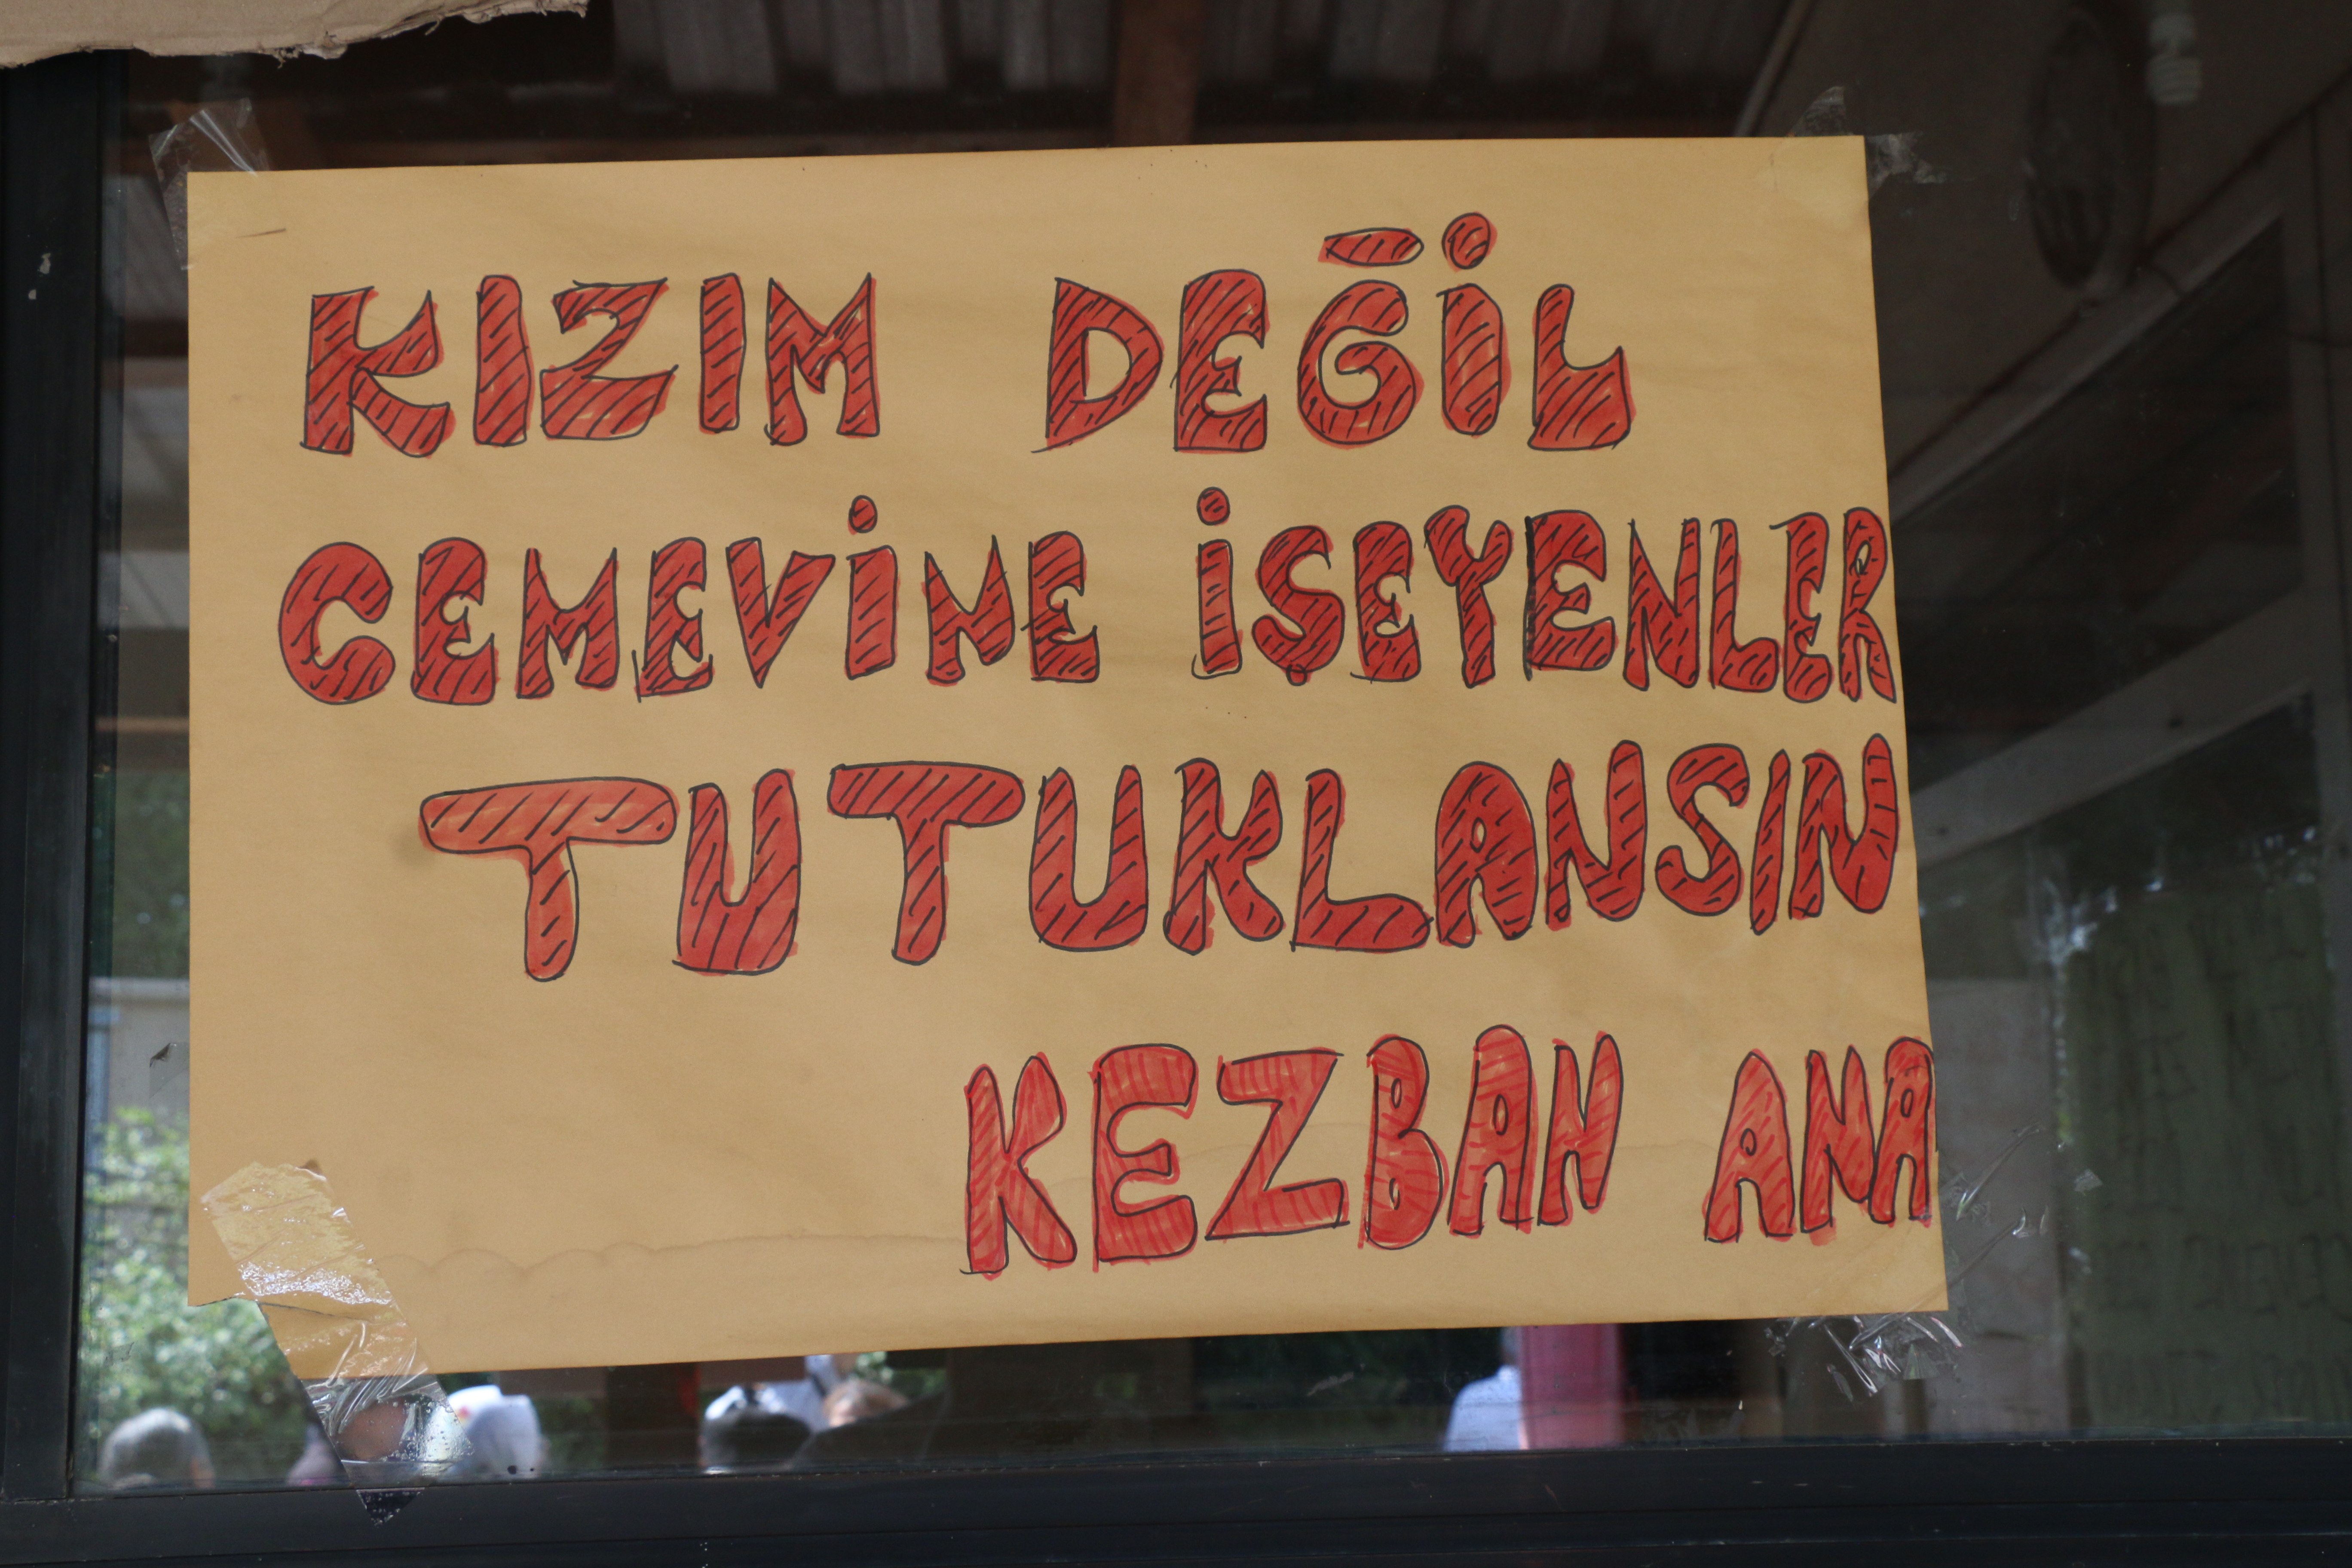 KIZIM DEĞİL
CEMEVİNE İŞEYENLER
TUTUKLANSIN
KEZBAN ANA